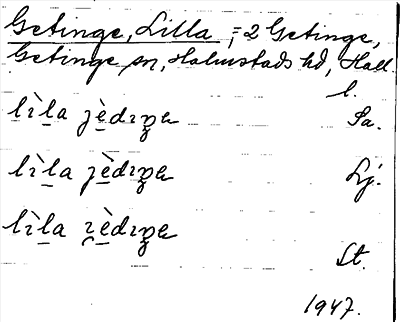 Getinge, Lilla, = 2 Getinge,
Getinge sn, Halmstads hd, Hall.
l.
lìla jèdıŋe Sa.
lìla jèdıŋe Lj.
lìla ɪèdıŋe St.
1947.